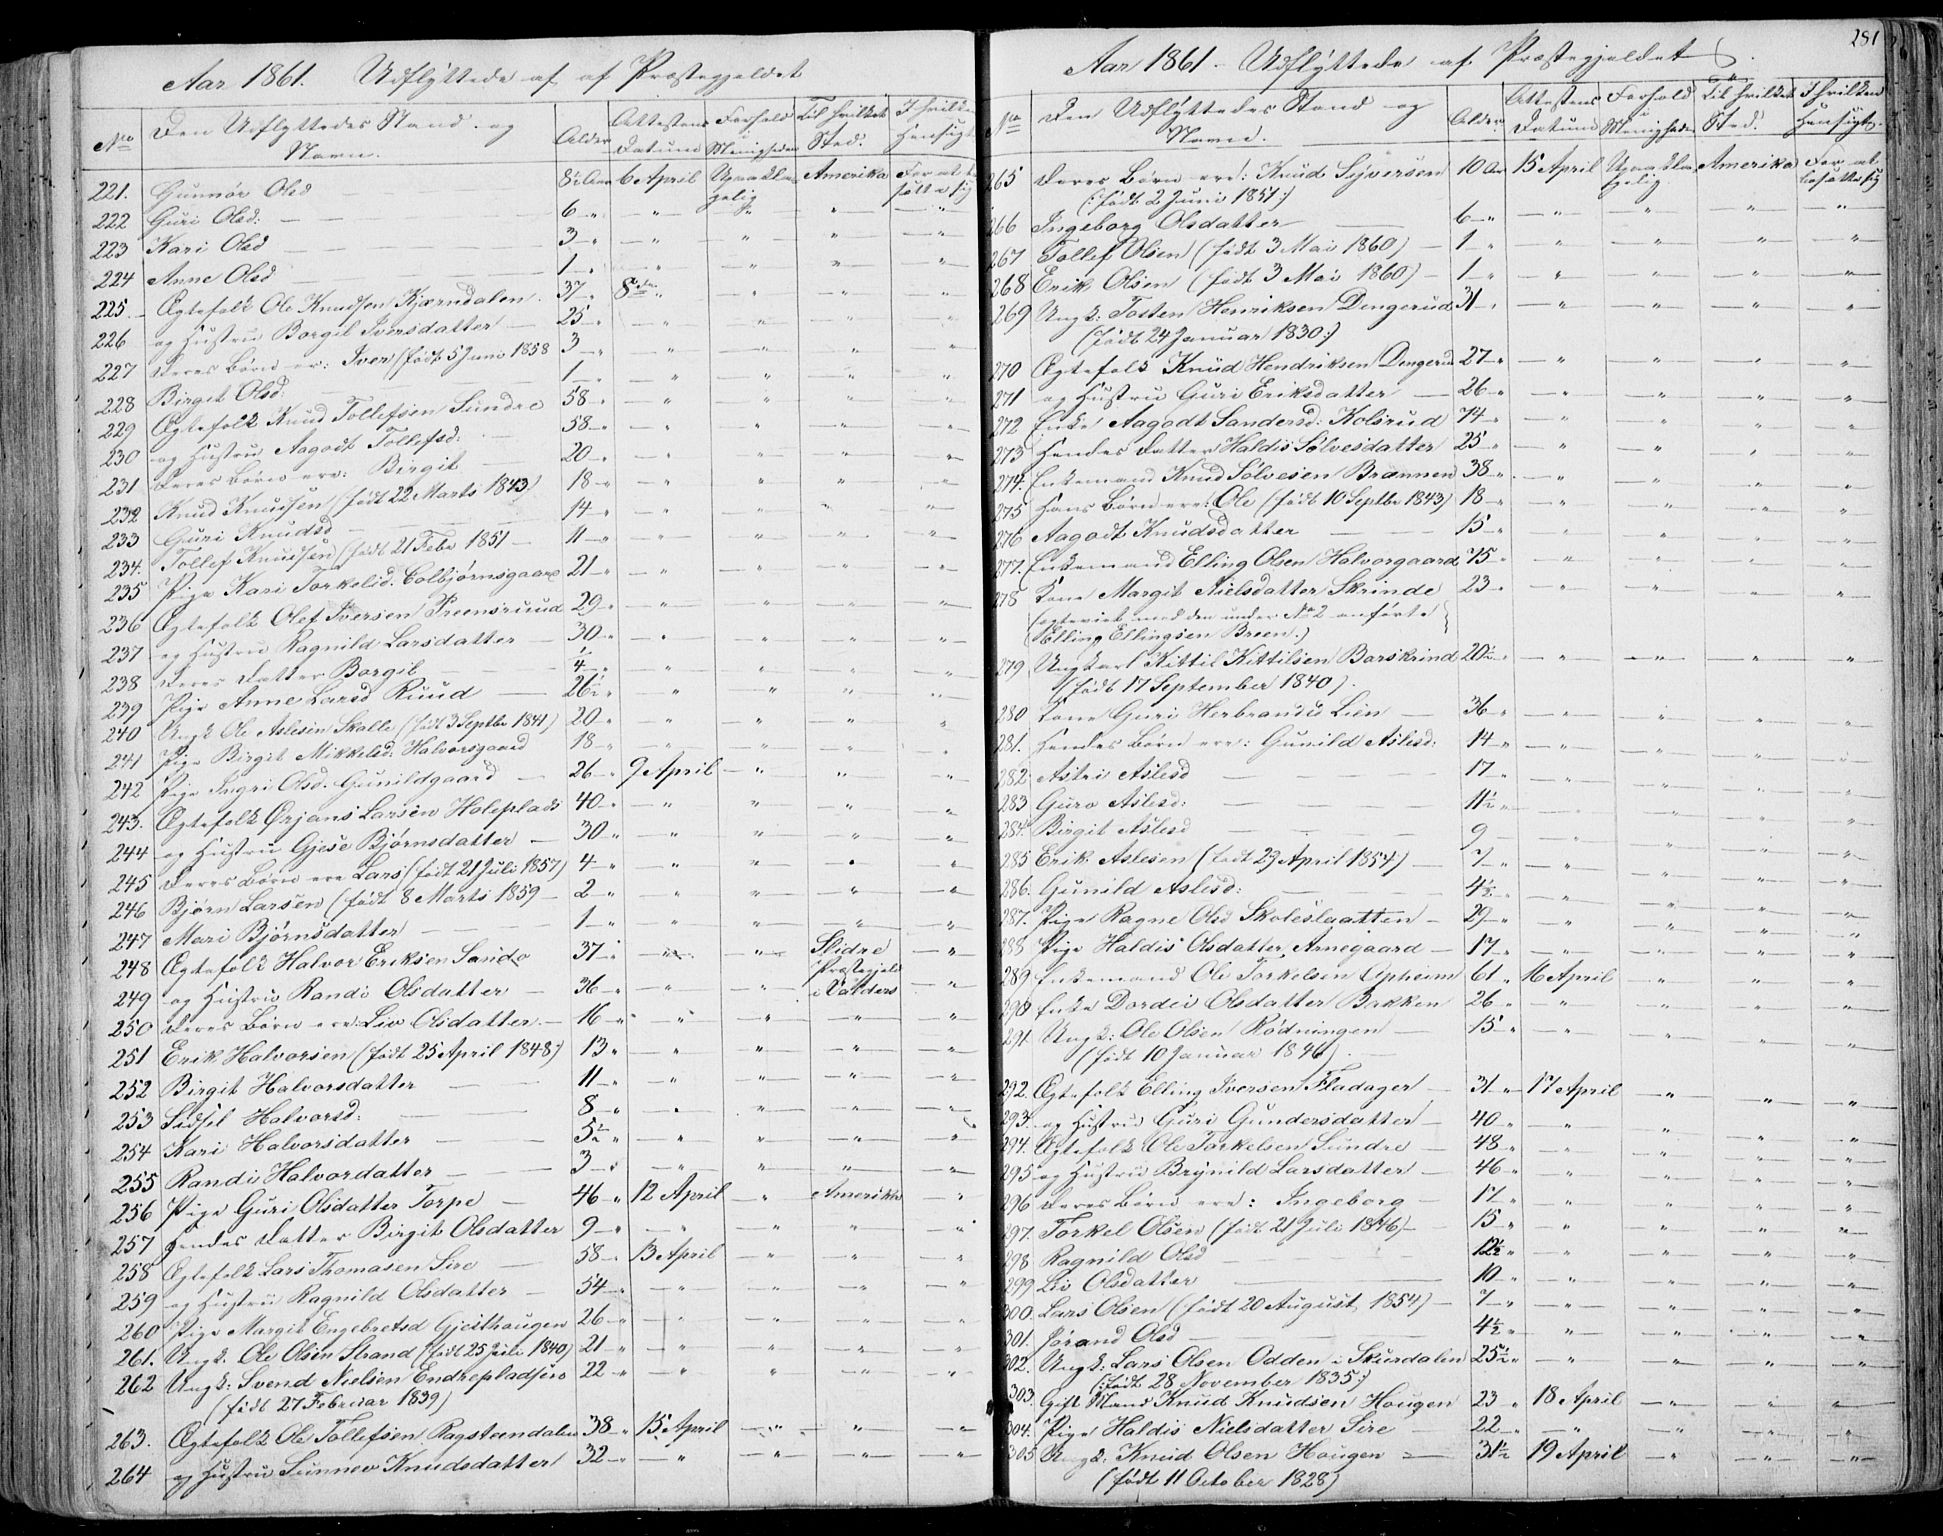 Aar 1861. Udflyttede af af Præstegjeldet
No Den Udflyttedes Stand og Navn. Alder Attestens Datum Forhold i Menigheden Til hvilket Sted. I hvilken Hensigt
221. Gunnor Olsd 8½ Aar 6 April Upaaklagelig Amerika For at bosætte sig
222 Guri Olsd: — 6 " " " " "
223 Kari Olsd — 3 " " " " "
224 Anne Olsd 1 " " " " "
225. Ægtefolk Ole Knudsen Kjærndalen 37 " 8de " " " "
226 og Hustru Borgil Iversdatter — 25 " " " " "
227 Deres Børn er: Iver (født 5 Juni 1858 3 " " " " "
228 Birgit Olsd: — 1 " " " " "
229 Ægtefolk Knud Tollefsen Sundre 58 " " " " "
230 og Hustru Aagodt Tollefsd: 58 " " " " "
231 Deres Børn ere: Birgit — 20 " " " " "
232 Knud Knudsen (født 22 Marts 1843) 18 " " " " "
233 Guri Knudsd — 14 " " " " "
234. Tollef Knudsen (født 21 Febr 1851 — 11 " " " " "
235 Pige Kari Torkelsd. Colbjørnsgaard 21 " " " " "
236 Ægtefolk Olef Iversen Preensruud 29 " " " " "
237 og Hustru Ragnild Larsdatter — 30 " " " " "
238 Deres Datter Borgil — ¼ " " " " "
239 Pige Anne Larsd Ruud — 26½ " " " " "
240 Ungk Ole Aslesen Skalle (født 3 Septbr 1841) 20 " " " " "
241 Pige Birgit Mikkelsd: Halvorsgaard 18 " " " " "
242 Pige Ingri Olsd. Gunildgaard — 26 " 9 April " " "
243. Ægtefolk Ørjans Larsen Holeplads 40 " " " " "
244 og Hustru Gjese Bjørnsdatter — 30 " " " " "
245 Deres Børn ere Lars (født 21 Juli 1857) 4 " " " " "
246 Bjørn Larsen (født 8 Marts 1859 — 2 " " " " "
247 Mari Bjørnsdatter — 1 " " " " "
248 Ægtefolk Halvor Eriksen Sando 37 " " " Slidre Præstegjeld i Valders "
249 og Hustru Randi Olsdatter — 36 " " " "
250 Deres Børn ere: Liv Olsdatter. — 16 " " " " "
251 Erik Halvorsen (født 25 April 1848:) 13 " " " " "
252 Birgit Halvorsdatter — 11 " " " " "
253 Sidsel Halvorsd: — 8 " " " " "
254 Kari Halvorsdatter — 5½ " " " " "
255 Randi Halvordatter — 3 " " " " "
256 Pige Guri Olsdatter Torpe — 46 " 12 April " Amerika "
257 Hendes Datter Birgit Olsdatter 9 " " " " "
258 Ægtefolk Lars Thomasen Sire — 58 " 13 April " " "
259 og Hustru Ragnild Olsdatter — 54 " " " " "
260 Pige Margit Engebretsd Gjesthaugen 26 " " " " "
261. Ungk. Ole Olsen Strand (født 25 Juli 1840) 21 " " " " "
262 Ungk: Svend Nielsen Endrepladsen 22 " " " " "
(født 27 Februar 1839)
263. Ægtefolk Ole Tollefsen Ragsteendalen 38 " 15 April " " "
264 og Hustru Sunnev Knudsdatter 32 " " " " "
281
Aar 1861 — Udflyttede af Præstegjeldet
No Den Udflyttedes Stand og Navn. Alder Attestens Datum Forhold i Menigheden Til hvilket Sted. I hvilken Hensigt.
265 Deres Børn ere: Knud Syversen 10 Aar 15 April Upaaklagelig Amerika For at bosætte sig
(: født 2 Juni 1851 :)
266 Ingeborg Olsdatter — 6 " " " " "
267 Tollef Olsen (født 3 Mai 1860) — 1 " " " " "
268 Erik Olsen (født 3 Mai 1860) — 1 " " " " "
269 Ungk: Tosten Henriksen Dengerud 31 " " " " "
(født 24 Januar 1830:)
270 Ægtefolk Knud Hendriksen Dengerud 27 " " " " "
271 og Hustru Guri Eriksdatter — 26 " " " " "
272 Enke Aagodt Sandersd: Kolsrud 74 " " " " "
273 Hendes Datter Haldis Sølvesdatter 25 " " " " "
274. Enkemand Knud Sølvesen Brænnen 38 " " " " "
275 Hans Børn ere: Ole (født 10 Septbr 1843) 18 " " " " "
276 Aagodt Knudsdatter — 15 " " " " "
277. Enkemand Elling Olsen Halvorgaard 75 " " " " "
278 Kone Margit Nielsdatter Skrinde 23 " " " " "
(egteviet med den under No 2 anførte
Elling Ellingsen Breen.)
279 Ungkarl Kittil Kittilsen Barskrind 20½ " " " " "
(født 17 September 1840).
280 Kone Guri Herbrandsd Lien — 36 " " " " "
281. Hendes Børn ere: Gunild Aslesd: 14 " " " " "
282. Astri Aslesd — 17 " " " " "
283 Guro Aslesd: — 11½ " " " " "
284. Birgit Aslesd — 9 " " " "
285 Erik Aslesen (født 29 April 1854) — 7 " " " " "
286. Gunild Aslesd: — 4½ " " " " "
287. Pige Ragne Olsd Skoleslaatten — 29 " " " " "
288 Pige Haldis Olsdatter Arnegaard — 17 " " " " "
289 Enkemand Ole Torkelsen Opheim 61 " 16 April " " "
290 Enke Dordei Olsdatter Bakken 26 " " " " "
291 Ungk: Ole Olsen Rødningen — 15 " " " " "
(født 10 Januar 1846).
292. Ægtefolk Elling Iversen Fladager 31 " 17 April " " "
293. og Hustru Guri Gundersdatter — 40 " " " " "
294. Ægtefolk Ole Torkelsen Sundre — 48 " " " " "
295 og Hustru Brynild Larsdatter — 46 " " " " "
296 Deres Børn ere: Ingeborg — 17 " " " " "
297. Torkel Olsen (født 21 Juli 1846) — 15 " " " " "
298. Ragnild Olsd — 12½ " " " " "
299 Liv Olsdatter — 10 " " " " "
300. Lars Olsen (født 20 August 1854) — 7 " " " " "
301. Jørand Olsd — 4½ " " " " "
302. Ungk: Lars Olsen Odden i Skurdalen 25½ " " " " "
(: født 28 November 1835 :)
303. Gift Mand Knud Knudsen Hougen 23 " 18 April " " "
304. Pige Haldis Nielsdatter Sire — 22 " " " " "
305 Ungk: Knud Olsen Hougen — 31½ 19 April " " "
(født 11 October 1828)